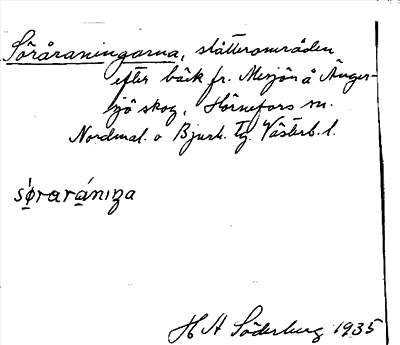 Söråraningarna, slåtterområden
efter bäck fr. Mesjön å Änger-
sjö skog, Hörnefors sn.
Nordmal. o Bjurh. tg. Västerb. l.
sø̀raránıŋa
H A Söderberg 1935